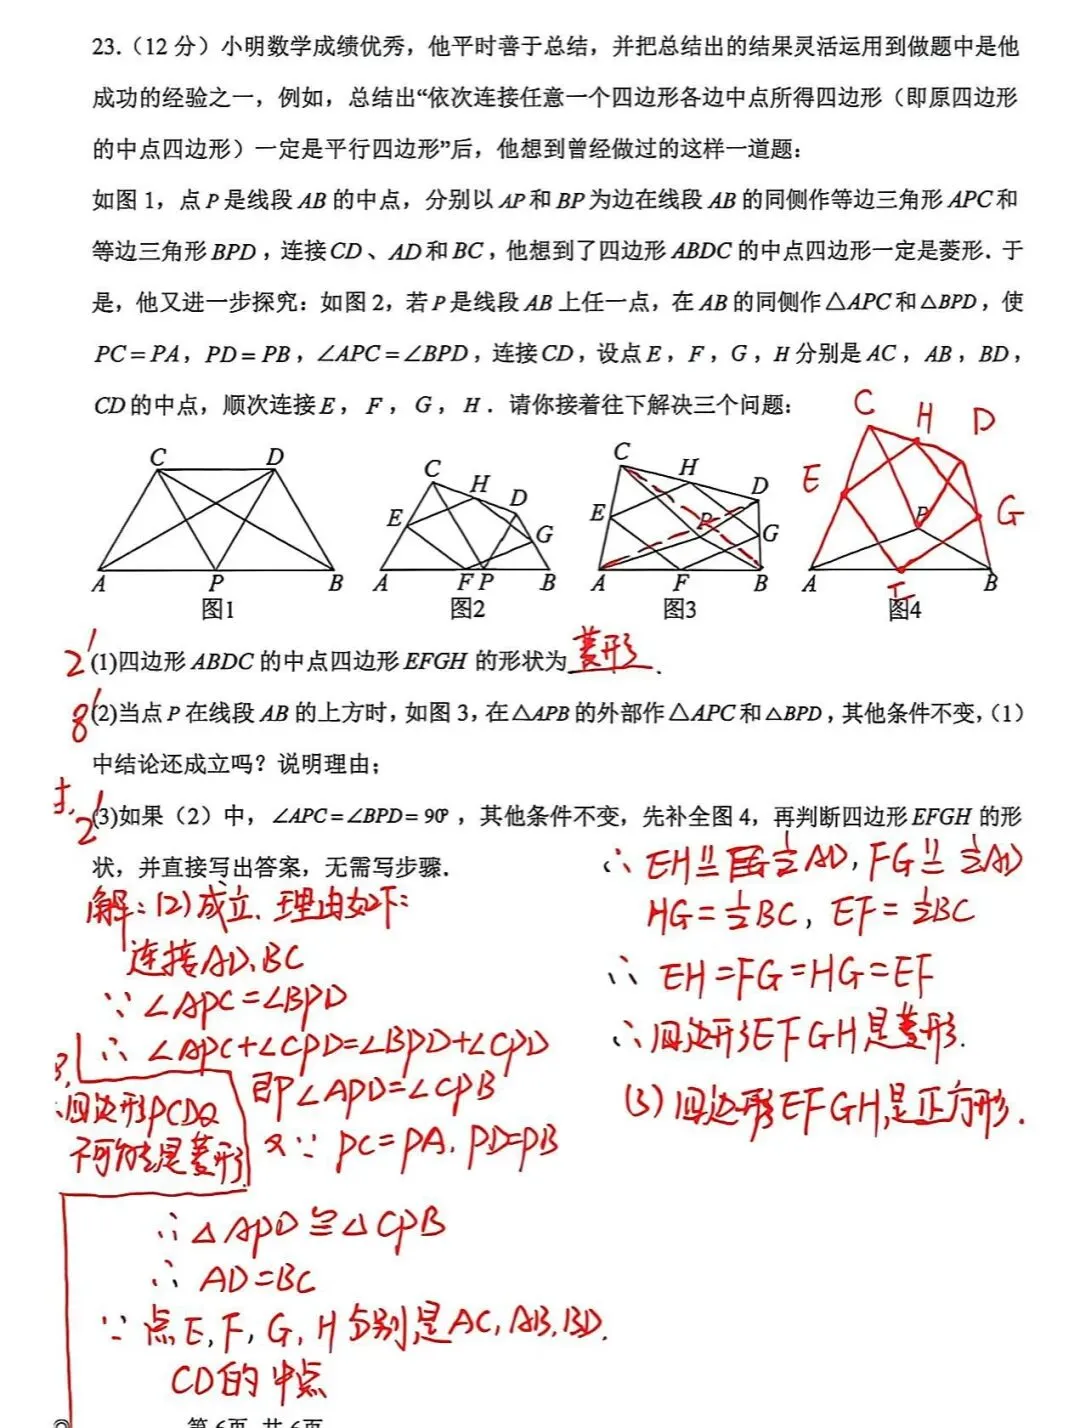 23.（12 分）小明数学成绩优秀，他平时善于总结，并把总结出的结果灵活运用到做题中是他
成功的经验之一，例如，总结出“依次连接任意一个四边形各边中点所得四边形（即原四边形
的中点四边形）一定是平行四边形”后，他想到曾经做过的这样一道题：
如图 1，点 P 是线段 AB 的中点，分别以 AP 和 BP 为边在线段 AB 的同侧作等边三角形 APC 和
等边三角形 BPD，连接 CD、AD 和 BC，他想到了四边形 ABDC 的中点四边形一定是菱形．于
是，他又进一步探究：如图 2，若 P 是线段 AB 上任一点，在 AB 的同侧作 △APC 和 △BPD，使
PC = PA，PD = PB，∠APC = ∠BPD，连接 CD，设点 E，F，G，H 分别是 AC，AB，BD，
CD 的中点，顺次连接 E，F，G，H．请你接着往下解决三个问题：
C D A P B 图1
C H D E G A F P B 图2
C H D E P G A F B 图3
C H D E P G A F B 图4
2' (1)四边形 ABDC 的中点四边形 EFGH 的形状为 菱形 ．
8' (2)当点 P 在线段 AB 的上方时，如图 3，在 △APB 的外部作 △APC 和 △BPD，其他条件不变，（1）
中结论还成立吗？说明理由；
2' (3)如果（2）中，∠APC = ∠BPD = 90°，其他条件不变，先补全图 4，再判断四边形 EFGH 的形
状，并直接写出答案，无需写步骤．
解：(2)成立．理由如下：
连接AD、BC
∵ ∠APC=∠BPD
∴ ∠APC+∠CPD=∠BPD+∠CPD
即 ∠APD=∠CPB
又∵ PC=PA, PD=PB
四边形PCDQ
不可能是菱形
∴ △APD≌△CPB
∴ AD=BC
∵ 点E, F, G, H分别是AC, AB, BD,
CD的中点
∴ EH 1/2 AD, FG 1/2 AD
HG=1/2BC, EF=1/2BC
∴ EH=FG=HG=EF
∴ 四边形EFGH是菱形.
(3) 四边形EFGH是正方形.
第 6页 共 6页